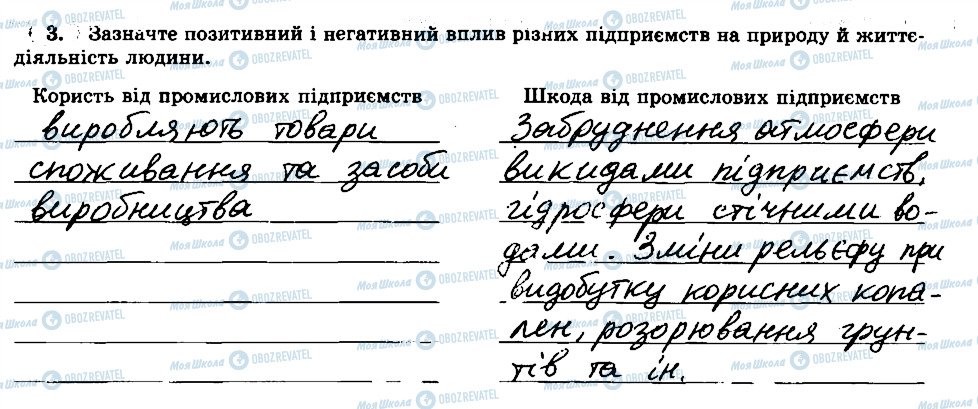 3. Зазначте позитивний і негативний вплив різних підприємств на природу й життє-
діяльність людини.
Користь від промислових підприємств
виробляють товари
споживання та засоби
виробництва
Шкода від промислових підприємств
Забруднення атмосфери
викидами підприємств,
гідросфери стічними во-
дами. Зміни рельєфу при
видобутку корисних копа-
лен, розорювання грун-
тів та ін.
МояШкола OBOZREVATEL